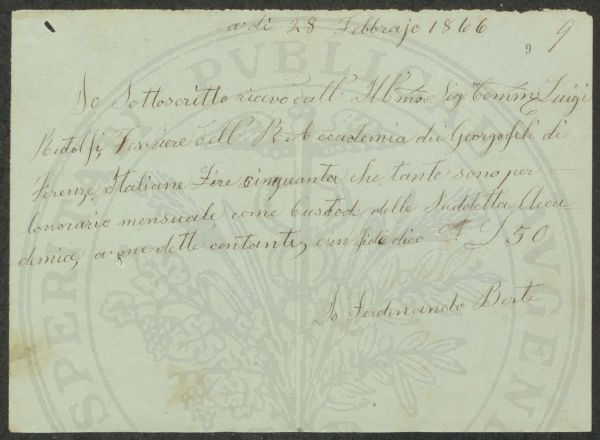 a dì 28 Febbrajo 1866
9 9
Io Sottoscritto ricevo dall' Ill.mo Sig.e Comm.e Luigi
Ridolfi, Tesoriere dell' R. Accademia dei Georgofili di
Firenze, Italiane Lire cinquanta che tante sono per
lonorario mensuale, come Custode della Sudetta Acca
demia, a me dette contanti, e in fede dico L 50
Io Ferdinando Berti
PVBLICAE
PROSPERITATI AVGENDAE